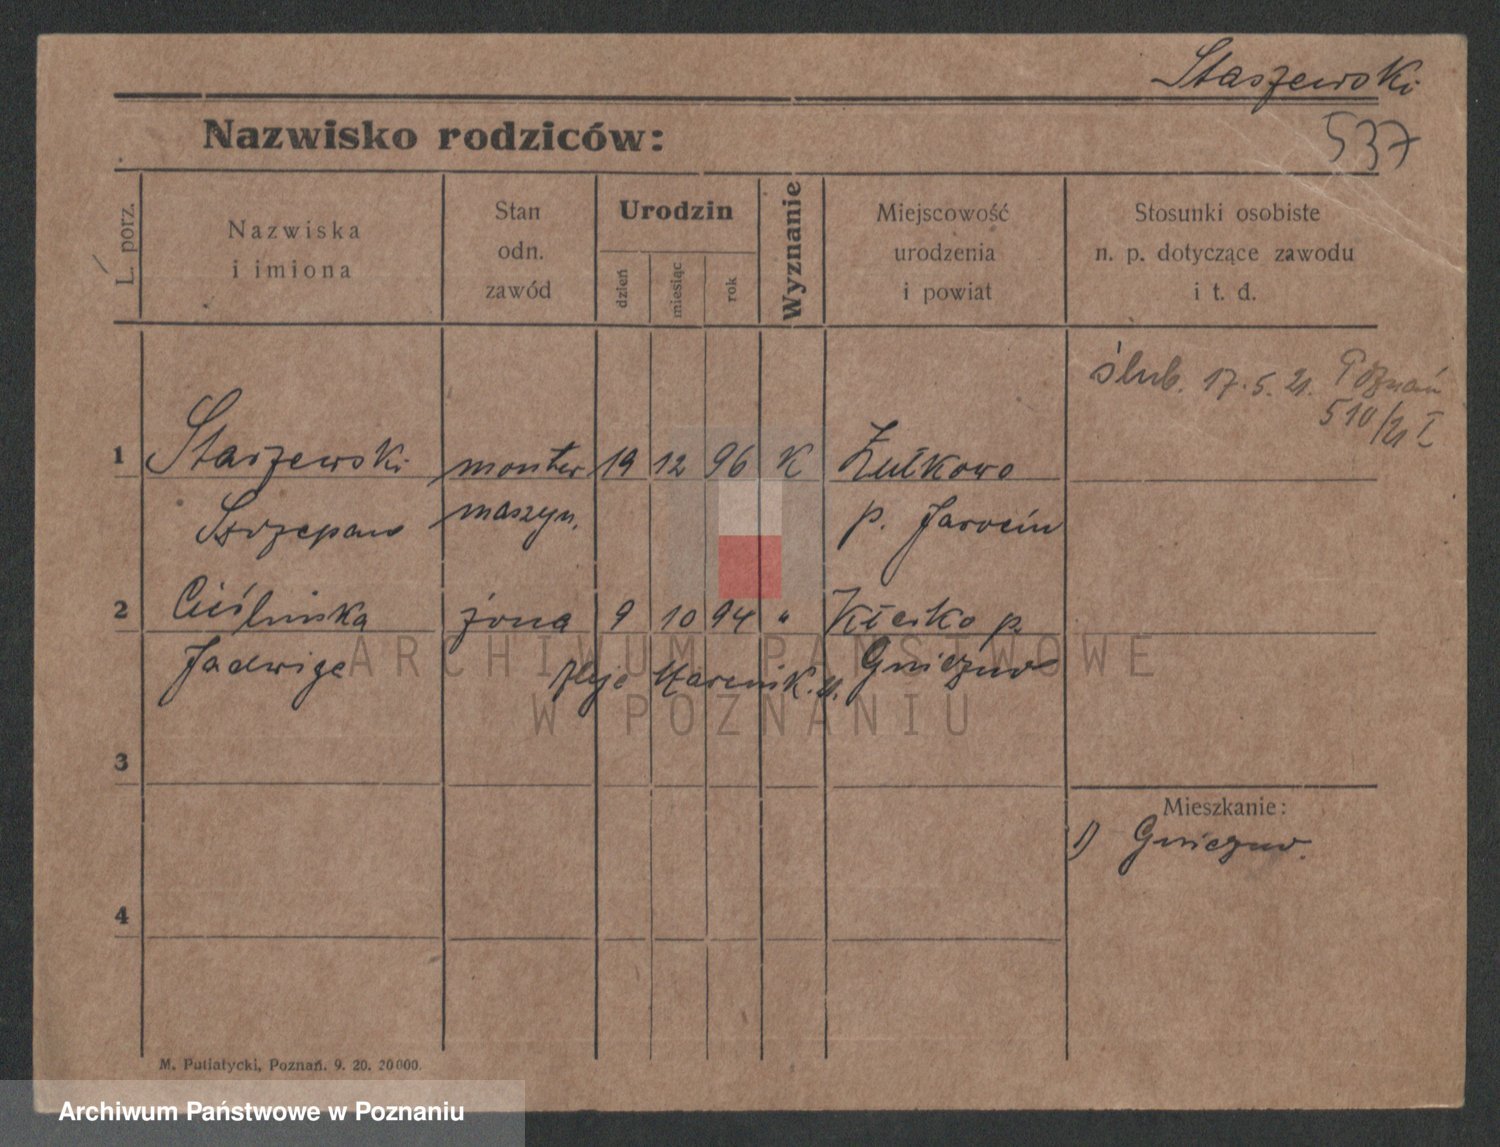 Staszewski
537
Nazwisko rodziców:
L. porz.
Nazwiska
i imiona
Stan
odn.
zawód
Urodzin
dzień
miesiąc
rok
Wyznanie
Miejscowość
urodzenia
i powiat
Stosunki osobiste
n. p. dotyczące zawodu
i t. d.
ślub. 17.5.21. Poznań
510/21 I
1 Staszewski monter 19 12 96 K Żułkowo
Szczepan maszyn. p. Jarocin
2 Cieślińska żona 9 10 94 " Kłecko p.
Jadwiga Gniezno
ARCHIWUM PAŃSTWOWE
W POZNANIU
3
Mieszkanie:
1) Gniezno.
4
M. Putiatycki, Poznań. 9. 20. 20000.
Archiwum Państwowe w Poznaniu